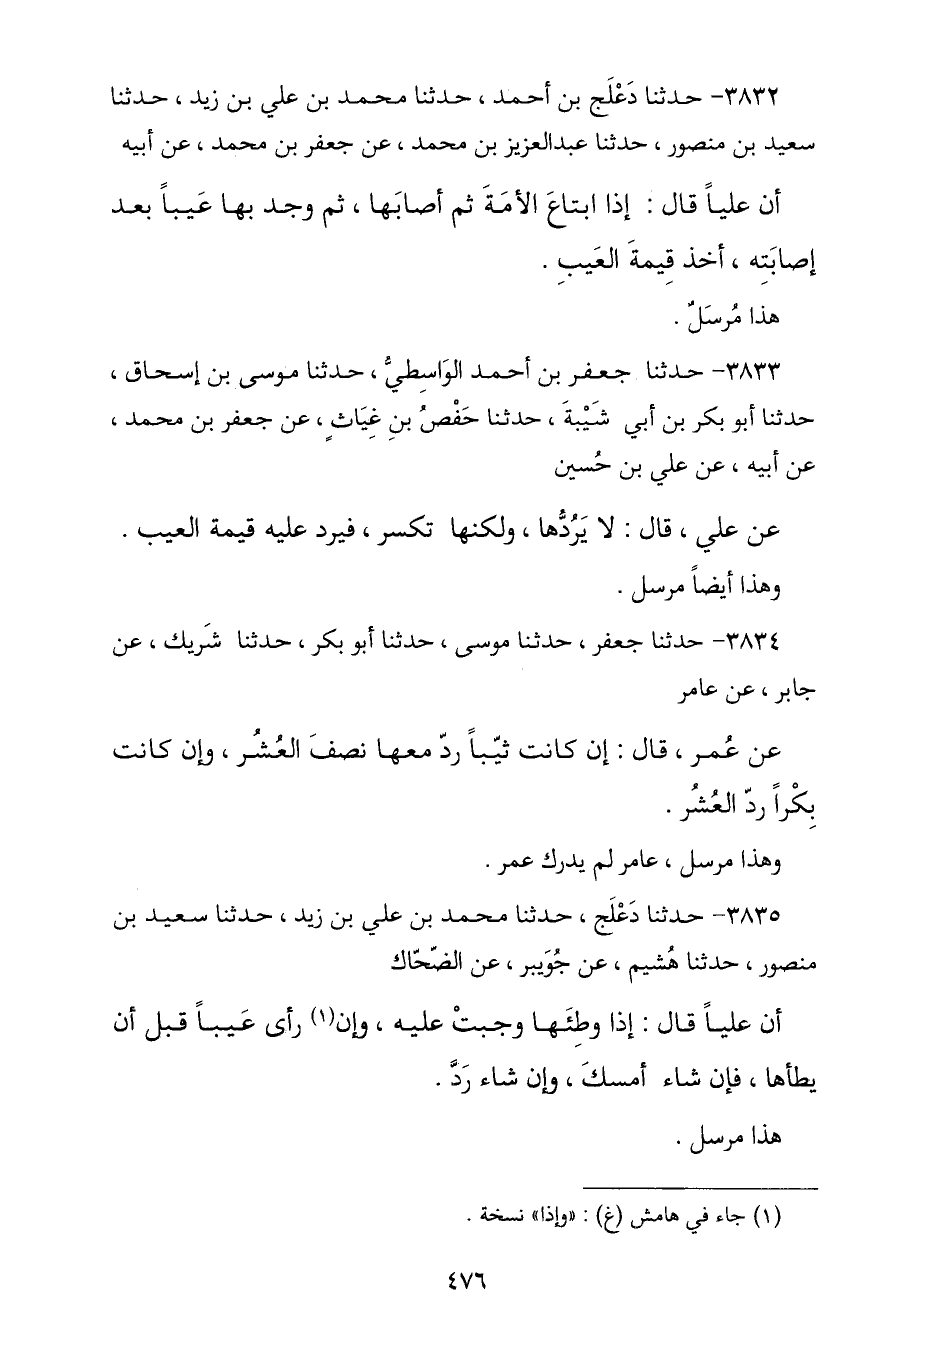 ٣٨٣٢- حدثنا دَعْلَج بن أحمد ، حدثنا محمد بن علي بن زيد ، حدثنا
سعيد بن منصور ، حدثنا عبدالعزيز بن محمد ، عن جعفر بن محمد ، عن أبيه
أن علياً قال : إذا ابتاعَ الأمَةَ ثم أصابَها ، ثم وجد بها عَيباً بعد
إصابَتِه ، أخذ قِيمةَ العَيبِ .
هذا مُرسَلٌ .
٣٨٣٣- حدثنا جعفر بن أحمد الوَاسِطيُّ ، حدثنا موسى بن إسحاق ،
حدثنا أبو بكر بن أبي شَيْبةَ ، حدثنا حَفْصُ بنِ غِيَاثٍ ، عن جعفر بن محمد ،
عن أبيه ، عن علي بن حُسين
عن علي ، قال : لا يَرُدُّها ، ولكنها تكسر ، فيرد عليه قيمة العيب .
وهذا أيضاً مرسل .
٣٨٣٤- حدثنا جعفر ، حدثنا موسى ، حدثنا أبو بكر ، حدثنا شَريك ، عن
جابر ، عن عامر
عن عُمر ، قال : إن كانت ثيّباً ردّ معها نصفَ العُشُر ، وإن كانت
بِكْراً ردّ العُشُر .
وهذا مرسل ، عامر لم يدرك عمر .
٣٨٣٥- حدثنا دَعْلَج ، حدثنا محمد بن علي بن زيد ، حدثنا سعيد بن
منصور ، حدثنا هُشيم ، عن جُوَيبر ، عن الضّحّاك
أن علياً قال : إذا وطِئَها وجبتْ عليه ، وإن(١) رأى عَيباً قبل أن
يطأها ، فإن شاء أمسكَ ، وإن شاء رَدَّ .
هذا مرسل .
(١) جاء في هامش (غ) : «وإذا» نسخة .
٤٧٦